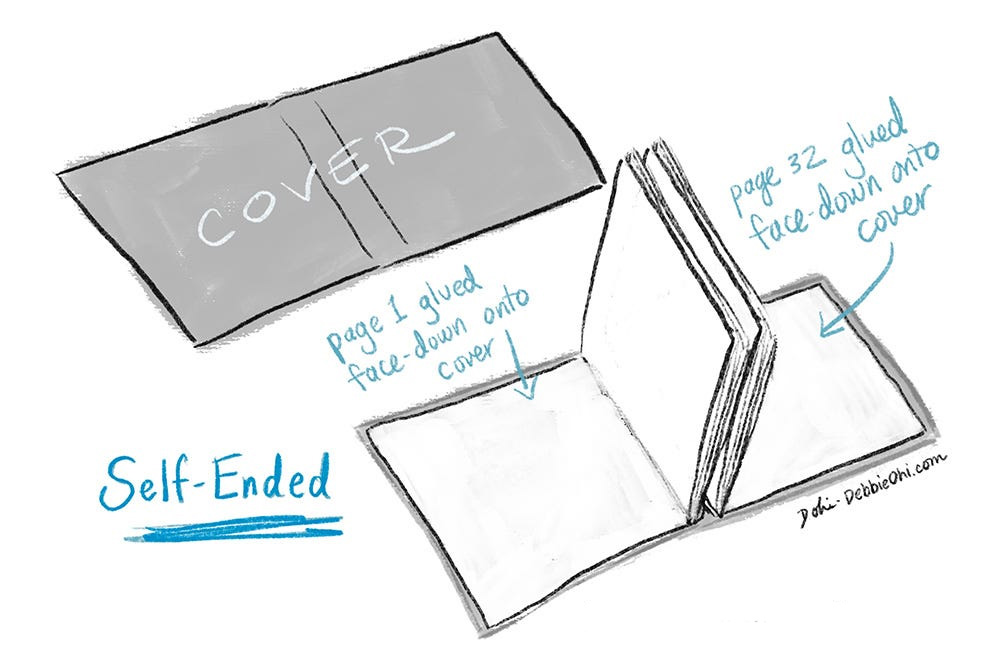 COVER
page 32 glued
face-down onto
cover
page 1 glued
face-down onto
cover
Self-Ended
DebbieOhi.com